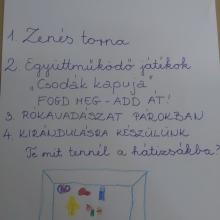 1. Zenés torna
2. Együttműködő játékok
„Csodák kapuja"
FOGD MEG - ADD ÁT!
3. ROKAVADÁSZAT PÁROKBAN
4. KIRÁNDULÁSRA KÉSZÜLÜNK
Te mit tennél a hátizsákba?